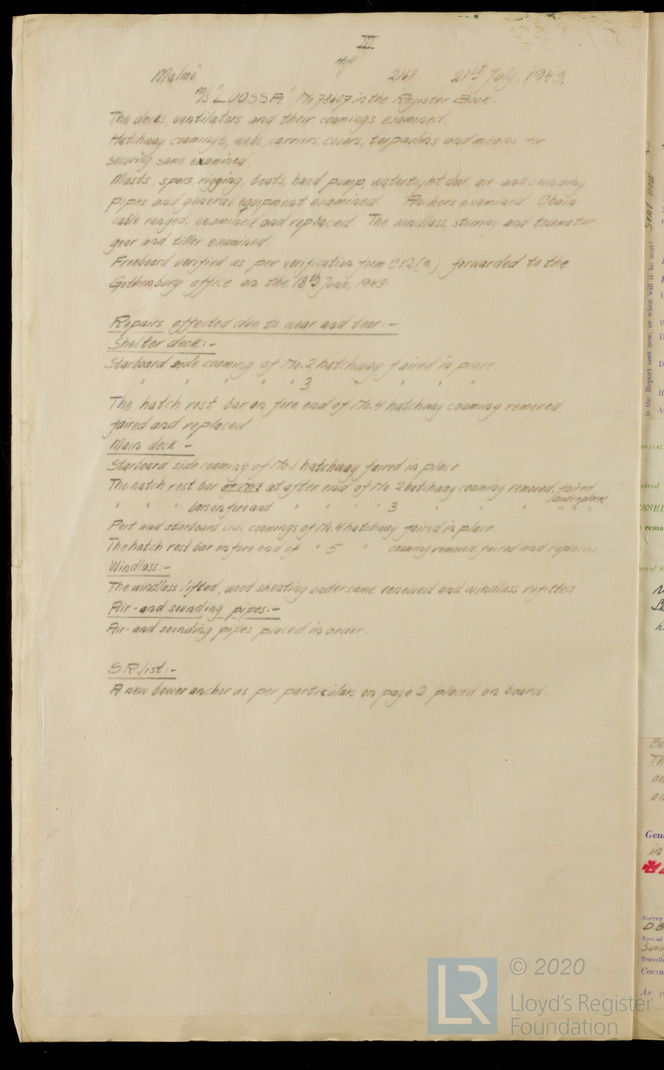 III
Malmö 2168 21st July, 1943.
M/S "LUOSSA" No 78607 in the Register Book.
The decks, ventilators and their coamings examined.
Hatchway coamings, webs, carriers, covers, tarpaulins and means for
securing same examined.
Masts, spars, rigging, boats, hand pump, watertight door, air and sounding
pipes and general equipment examined. Anchors examined Chain
cable ranged, examined and replaced. The windlass, steering and telemotor
gear and tiller examined.
Freeboard verified as per verification form C12(a) forwarded to the
Gothenburg office on the 18th June, 1943.
Repairs effected due to wear and tear:-
Shelter deck:-
Starboard side coaming of No.2 hatchway faired in place.
" " " " " 3 " " " "
The hatch rest bar on fore end of No.4 hatchway coaming removed
faired and replaced.
Main deck:-
Starboard side coaming of No 1 hatchway faired in place
The hatch rest bar at after end of No. 2 hatchway coaming removed, faired
and replaced
" " " bars on fore and " " " " 3 " " " " "
Port and starboard side coamings of No.4 hatchway faired in place.
The hatch rest bar on fore end of " 5 " coaming removed, faired and
Windlass:-
The windlass lifted, wood sheating under same renewed and windlass refitted.
Air- and sounding pipes:-
Air- and sounding pipes placed in order.
S.R list:-
A new bower anchor as per particulars on page 2 placed on board.
is the Report sent now, or when will it be sent?
Sent now
LR
© 2020
Lloyd's Register
Foundation